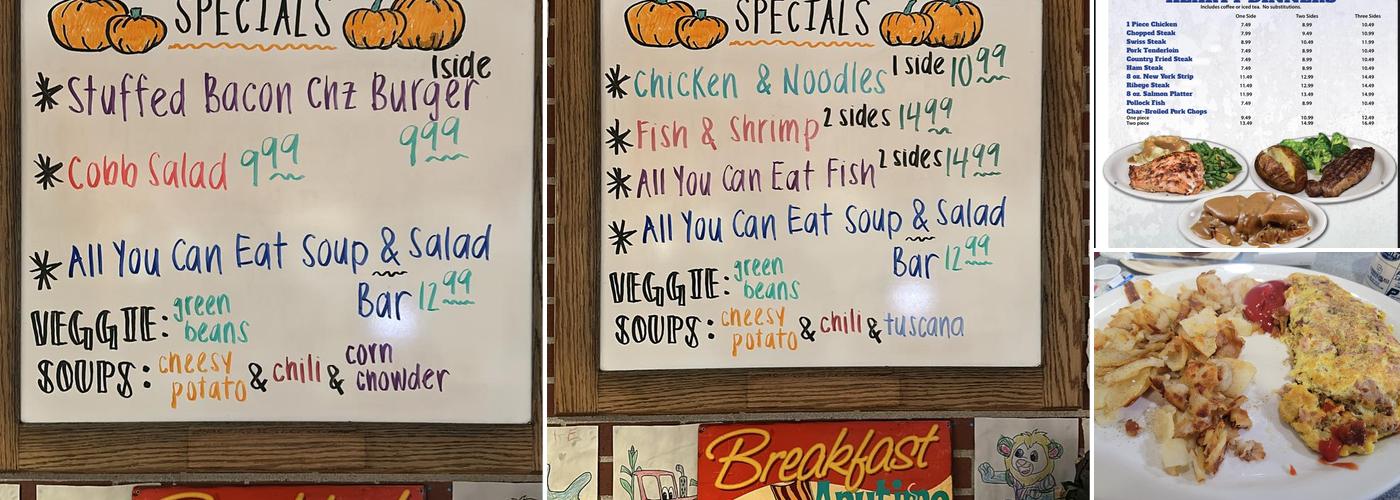 SPECIALS
1 side
* Stuffed Bacon Chz Burger
9 99
* Cobb Salad 9 99
* All You Can Eat Soup & Salad
Bar 12 99
VEGGIE: green
beans
SOUPS: cheesy
potato & chili & corn
chowder
SPECIALS
* Chicken & Noodles 1 side 10 99
* Fish & Shrimp 2 sides 14 99
* All You Can Eat Fish 2 sides 14 99
* All You Can Eat Soup & Salad
Bar 12 99
VEGGIE: green
beans
SOUPS: cheesy
potato & chili & tuscana
Breakfast
Anytime
HEARTY DINNERS
Includes coffee or iced tea. No substitutions.
One Side Two Sides Three Sides
1 Piece Chicken 7.49 8.99 10.49
Chopped Steak 7.99 9.49 10.99
Swiss Steak 8.99 10.49 11.99
Pork Tenderloin 7.49 8.99 10.49
Country Fried Steak 7.49 8.99 10.49
Ham Steak 7.49 8.99 10.49
8 oz. New York Strip 11.49 12.99 14.49
Ribeye Steak 11.49 12.99 14.49
8 oz. Salmon Platter 11.99 13.49 14.99
Pollock Fish 7.49 8.99 10.49
Char-Broiled Pork Chops
One piece 9.49 10.99 12.49
Two piece 13.49 14.99 16.49